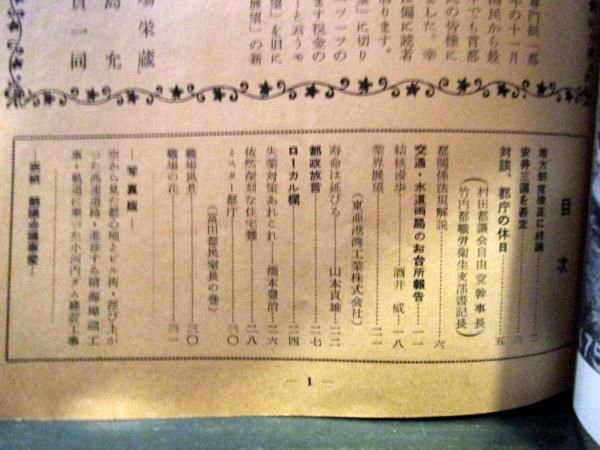 専門紙「都
年の十一月
国民から最
中でも首都
民の皆様に
ました。幸
偏に読者
ります。
」に切り
ーッツの
ます税金の
ーと云うモ
展望」を旧に
展望」の新
場栄蔵
島允
員一同
目次
地方制度改正に結論……二
安井三選を否定……三
対談、都庁の休日……五
(村田都議会自由党幹事長)
(竹内都職労衛生支部書記長)
都関係法規解説……六
交通・水道両局のお台所報告……一一
結核漫歩……酒井威…一八
業界展望……二一
(東亜港湾工業株式会社)
寿命は延びる……山本貞雄…二二
都政放言……二七
ローカル欄……二四
失業対策あれこれ……橋本豊治…二六
依然深刻な住宅難……二八
ミスター都庁……三〇
(富田都民室長の巻)
職場風景……三〇
職場の花……三一
―写真版―
空から見た都心地とビル街・浮び上が
った高速道路・進捗する晴海埠頭工
事・軌道に乗った小河内ダム建設工事
―表紙 都議会議事堂―
— 1 —